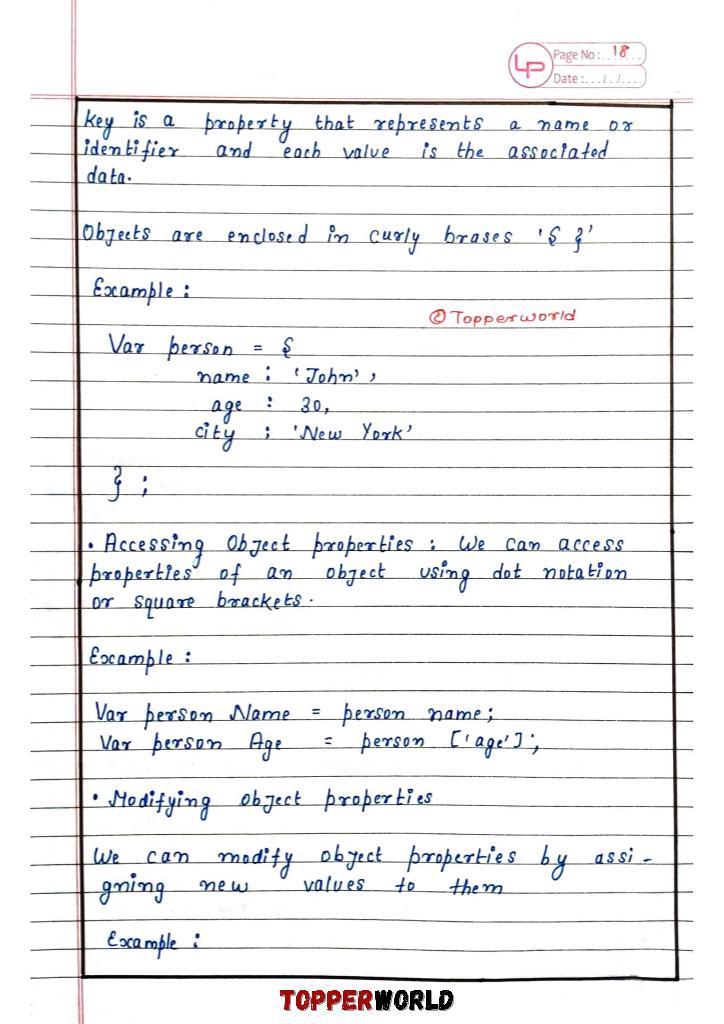 LP
Page No: 18
Date: / /
key is a property that represents a name or
identifier and each value is the associated
data.
Objects are enclosed in curly brases '{ }'
Example :
© Topperworld
Var person = {
name : 'John',
age : 30,
city : 'New York'
} ;
• Accessing Object properties : We can access
properties of an object using dot notation
or square brackets.
Example :
Var person Name = person name;
Var person Age = person ['age'];
• Modifying object properties
We can modify object properties by assi-
gning new values to them
Example :
TOPPERWORLD